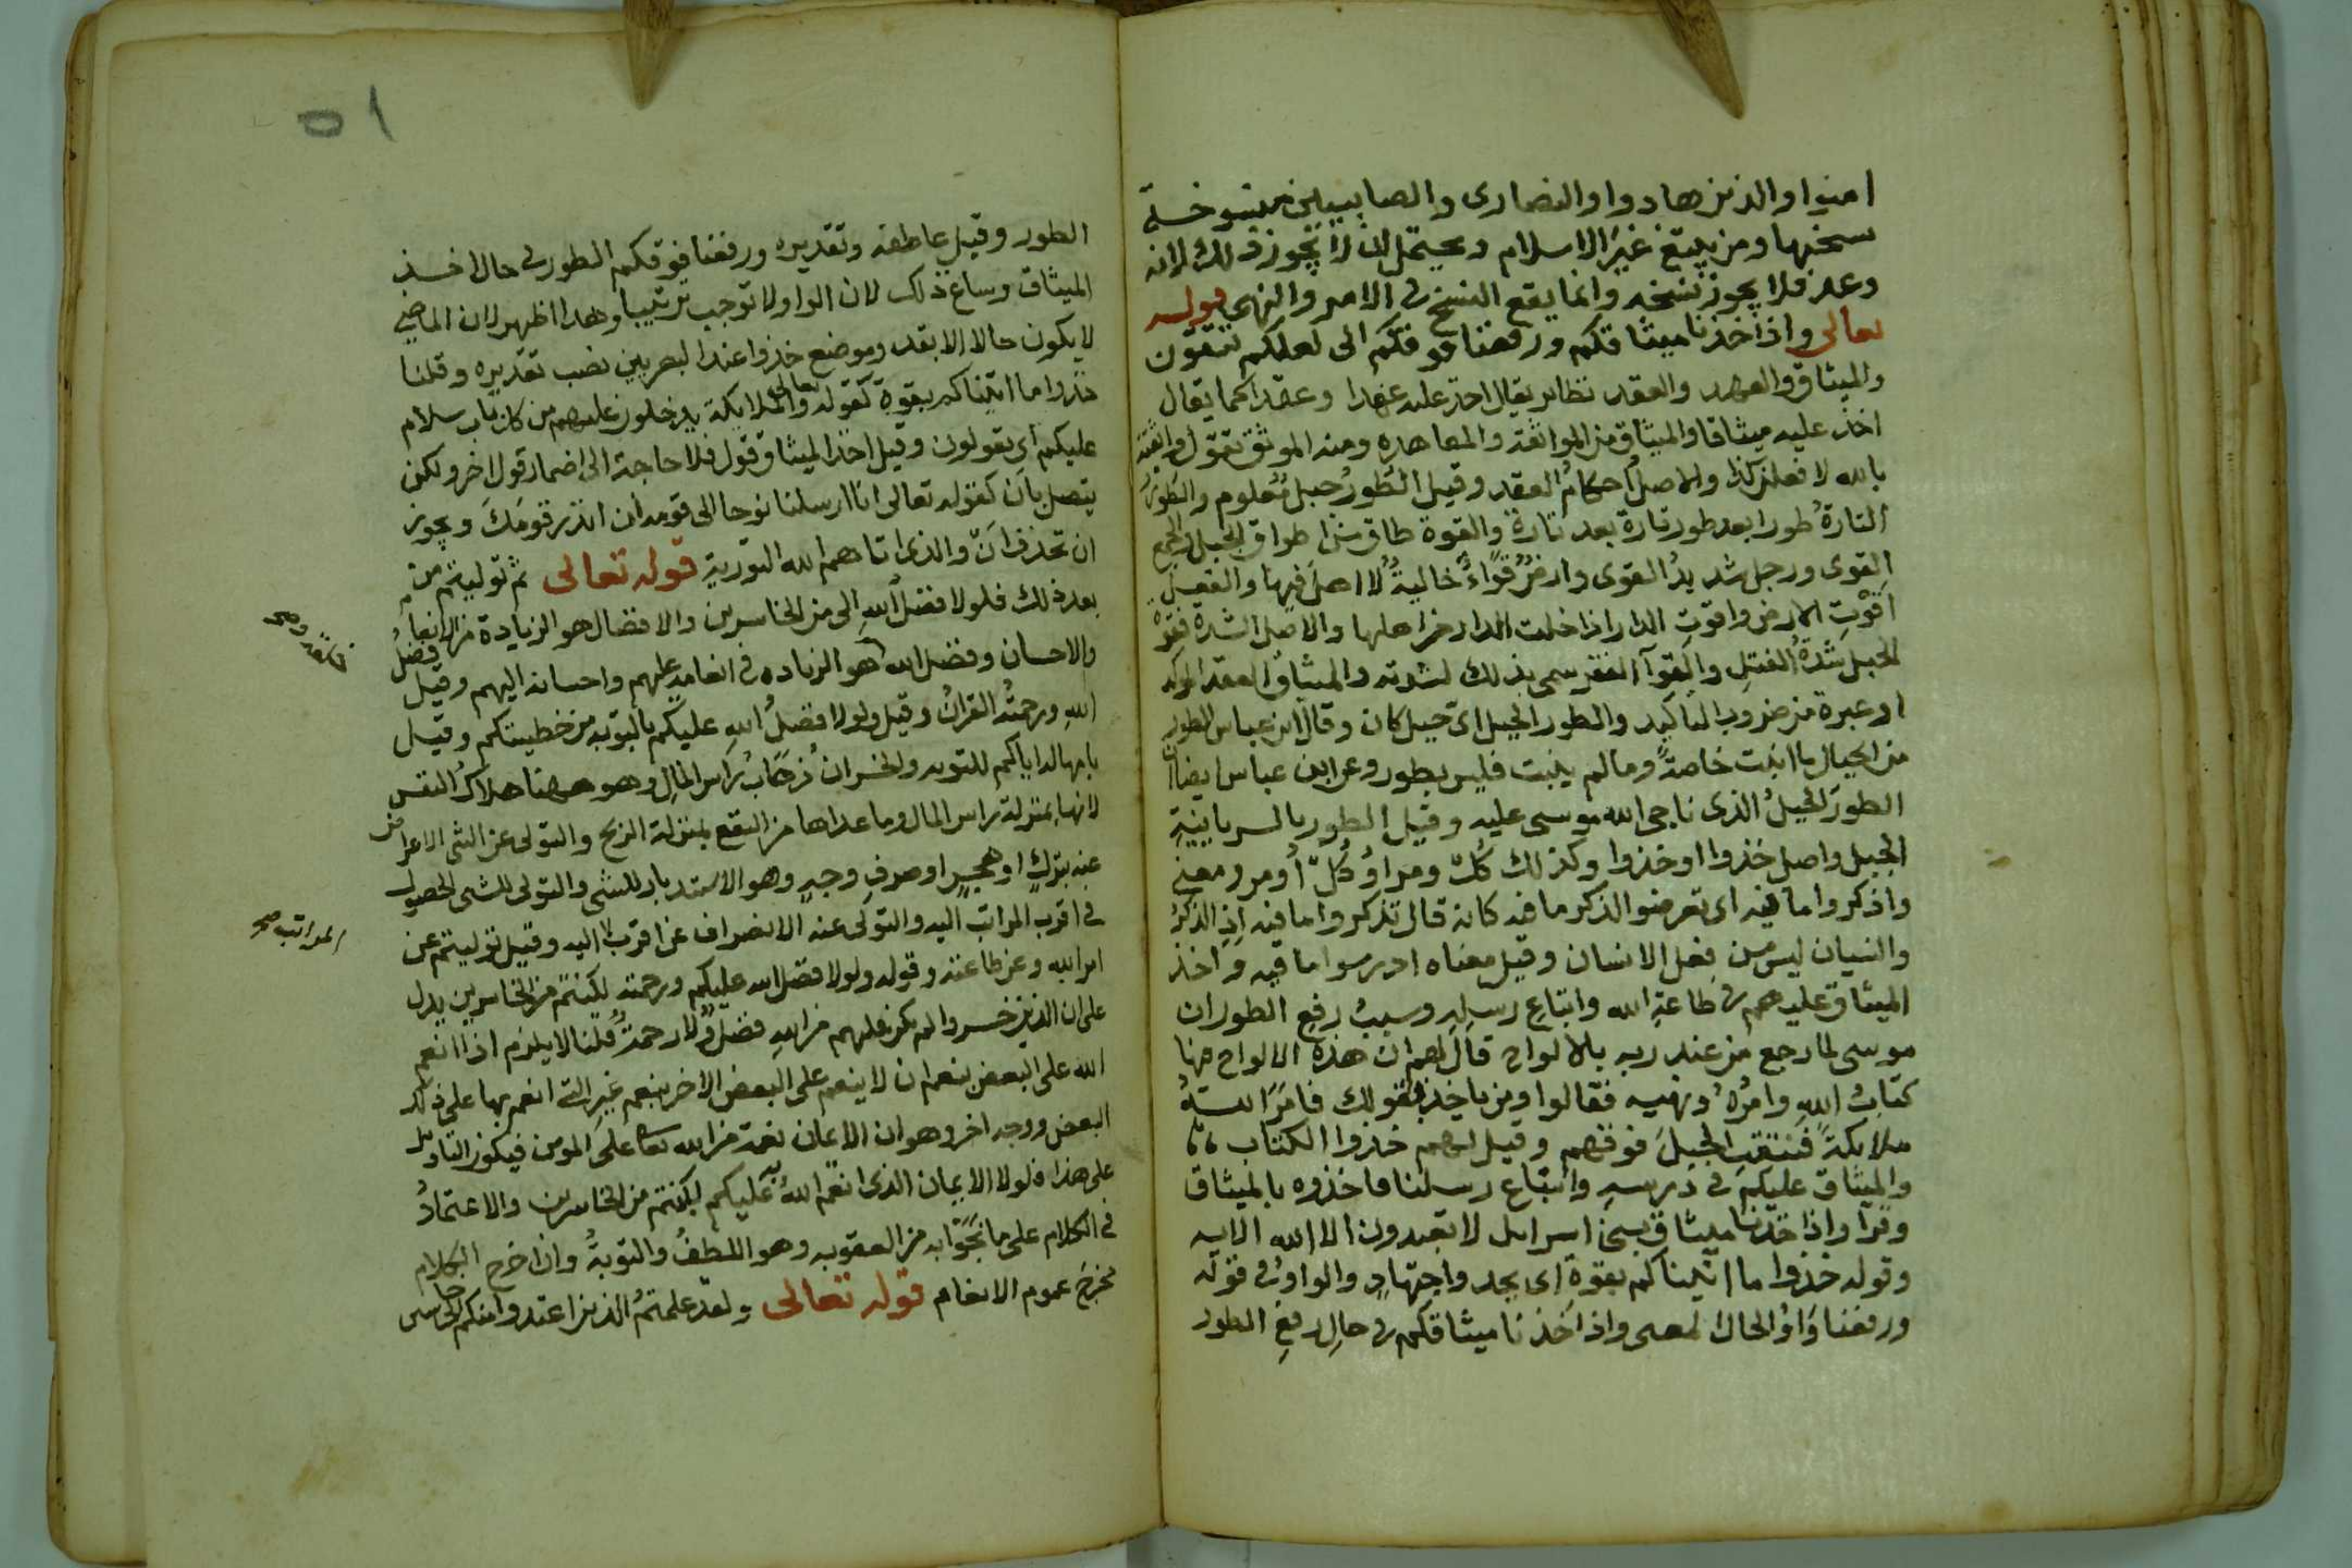 امنوا والذين هادوا والنصارى والصابيين منسوخة
نسختها ومن يبتغ غير الاسلام ويحتمل ان لا يجوز ذلك لانه
وعد فلا يجوز نسخه وانما يقع النسخ في الامر والنهي قوله
تعالى واذ اخذنا ميثاقكم ورفعنا فوقكم الى لعلكم تتقون
والميثاق والعهد والعقد نظاير يقال اخذ عليه عهدا وعقدا كما يقال
اخذ عليه ميثاقا والميثاق من المواثقة والمعاهده ومنه الموثق تقول واثقته
بالله لافعلن كذا والاصل احكام العقد وقيل الطور جبل معلوم والطور
التارة طورا بعد طور تارة بعد تارة والقوة طاق من اطواق الحبل والجمع
القوى ورجل شديد القوى وارض قواء خالية لا اهل فيها والفعل
اقوت الارض واقوت الدار اذا خلت الدار من اهلها والاصل الشدة فقوة
الحبل شدة الفتل والقوآ الفقر سمى بذلك لشدته والميثاق العقد الموكد
او غيره من ضروب التاكيد والطور الجبل اي جبل كان وقال ابن عباس الطور
من الجبال ما انبت خاصة وما لم ينبت فليس بطور وعن ابن عباس ايضا ان
الطور الجبل الذى ناجى الله موسى عليه وقيل الطور بالسريانية
الجبل واصل خذوا اوخذوا وكذلك كل ومر اوكل اومر ومعنى
واذكروا ما فيه اى تعرضوا لذكر ما فيه كانه قال تذكروا ما فيه اذ الذكر
والنسيان ليس من فعل الانسان وقيل معناه ادرسوا ما فيه واخذ
الميثاق عليهم في طاعة الله واتباع رسله وسبب رفع الطور ان
موسى لما رجع من عند ربه بالالواح قال لهم ان هذه الالواح فيها
كتاب الله وامره ونهيه فقالوا ومن ياخذ بقولك فامر الله
ملايكة فنتقت الجبل فوقهم وقيل لهم خذوا الكتاب
والميثاق عليكم في درسه واتباع رسلنا فاخذوه بالميثاق
وقرا واذ اخذنا ميثاق بني اسرايل لا تعبدون الا الله الايه
وقوله خذوا ما اتيناكم بقوة اى بجد واجتهاد والواو في قوله
ورفعنا واو الحال المعنى واذ اخذنا ميثاقكم في حال رفع الطور
٥١
الطور وقيل عاطفه وتقديره ورفعنا فوقكم الطور في حال اخذ
الميثاق وساغ ذلك لان الواو لا توجب ترتيبا وهذا اظهر لان الماضي
لا يكون حالا الا بقد وموضع خذوا عند البصريين نصب تقديره وقلنا
خذوا ما اتيناكم بقوة كقوله تعالى والملايكة يدخلون عليهم من كل باب سلام
عليكم اى يقولون وقيل اخذ الميثاق قول فلا حاجة الى اضمار قول اخر ولكن
يتصل بان كقوله تعالى انا ارسلنا نوحا الى قومه ان انذر قومك ويجوز
ان تحذف ان والذى اتاهم الله التورية قوله تعالى ثم توليتم من
بعد ذلك فلولا فضل الله الى من الخاسرين والافضال هو الزيادة من الانعام
والاحسان وفضل الله هو الزياده في انعامه عليهم واحسانه اليهم وقيل فضل
الله ورحمته القران وقيل ولولا فضل الله عليكم بالتوبه من خطيئتكم وقيل
بامهاله اياكم للتوبه والخسران ذهاب راس المال وهو ههنا هلاك النفس
لانها بمنزلة راس المال وما عداها من النفع بمنزلة الربح والتولى عن الشى الاعراض
عنه بترك او هجر او صرف وجه وهو الاستدبار للشى والتولى للشى الحصول
في اقرب المراتب اليه والتولى عنه الانصراف عن اقرب اليه وقيل توليتم عن
المراتب صح
امر الله وعن طاعته وقوله ولولا فضل الله عليكم ورحمته لكنتم من الخاسرين يدل
على ان الذين خسروا لم يكن عليهم من الله فضل ولا رحمة قلنا لا يلزم اذا انعم
الله على البعض بنعم ان لا ينعم على البعض الاخر بنعم غير التي انعم بها على ذلك
البعض ووجه اخر وهو ان الايمان نعمة من الله تعالى على المومن فيكون التاويل
على هذا فلولا الايمان الذى انعم الله به عليكم لكنتم من الخاسرين والاعتماد
في الكلام على ما نجوا به من العقوبه وهو اللطف والتوبة وان اخرج الكلام
مخرج عموم الانعام قوله تعالى ولقد علمتم الذين اعتدوا منكم الى خاسين